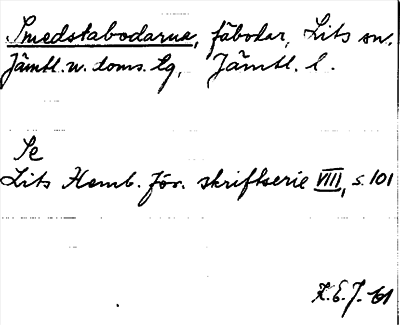 Smedstabodarna, fäbodar, Lits sn.
Jämtl. n. doms. lg, Jämtl. l.
Se
Lits Hemb. för. skriftserie VIII, s. 101
K.E.J. 61